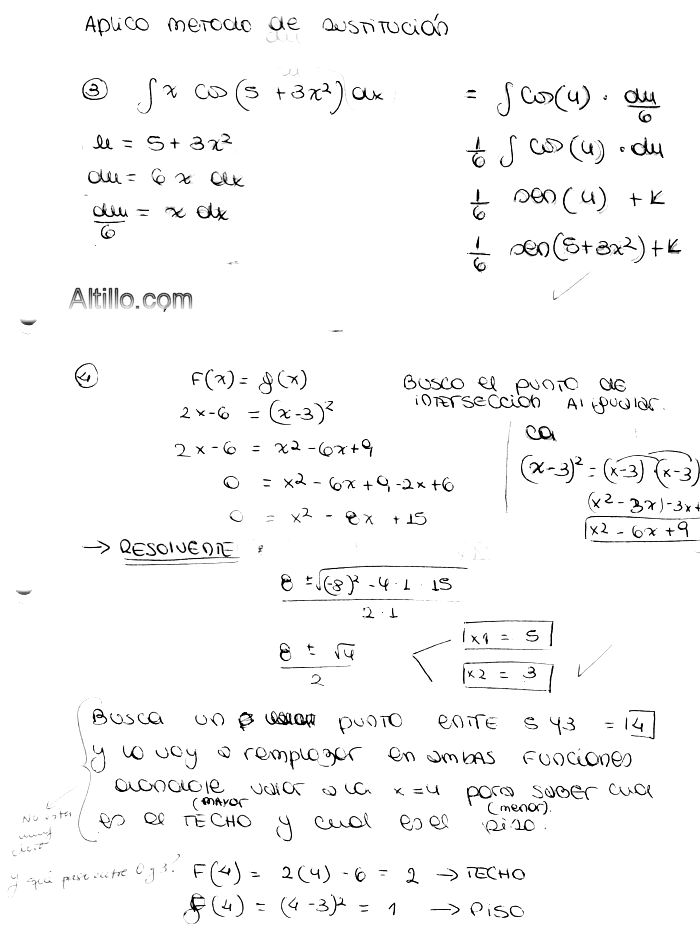 Aplico metodo de sustitución
③ ∫ x cos(5 + 3x²) dx = ∫ cos(u) · du/6
u = 5 + 3x²
1/6 ∫ cos(u) · du
du = 6 x dx
1/6 sen(u) + K
du/6 = x dx
1/6 sen(5+3x²) + K
Altillo.com
④ F(x) = g(x)
Busco el punto de
intersección Al igualar.
2x-6 = (x-3)²
ca
2x-6 = x²-6x+9
(x-3)² = (x-3) · (x-3)
0 = x²-6x+9-2x+6
(x²-3x)-3x+
0 = x² - 8x + 15
x² - 6x + 9
→ RESOLVENTE:
8 ± √(-8)² - 4·1·15
2·1
8 ± √4
2
x1 = 5
x2 = 3
Busca un punto ente 5 y 3 = 4
y lo voy a remplazar en ambas funciones
dandole valor a la x=4 para saber cual
(mayor (menor).
es el TECHO y cual es el piso.
No está
muy
Y qué pasa entre 0 y 3?
F(4) = 2(4) - 6 = 2 → TECHO
g(4) = (4-3)² = 1 → PISO